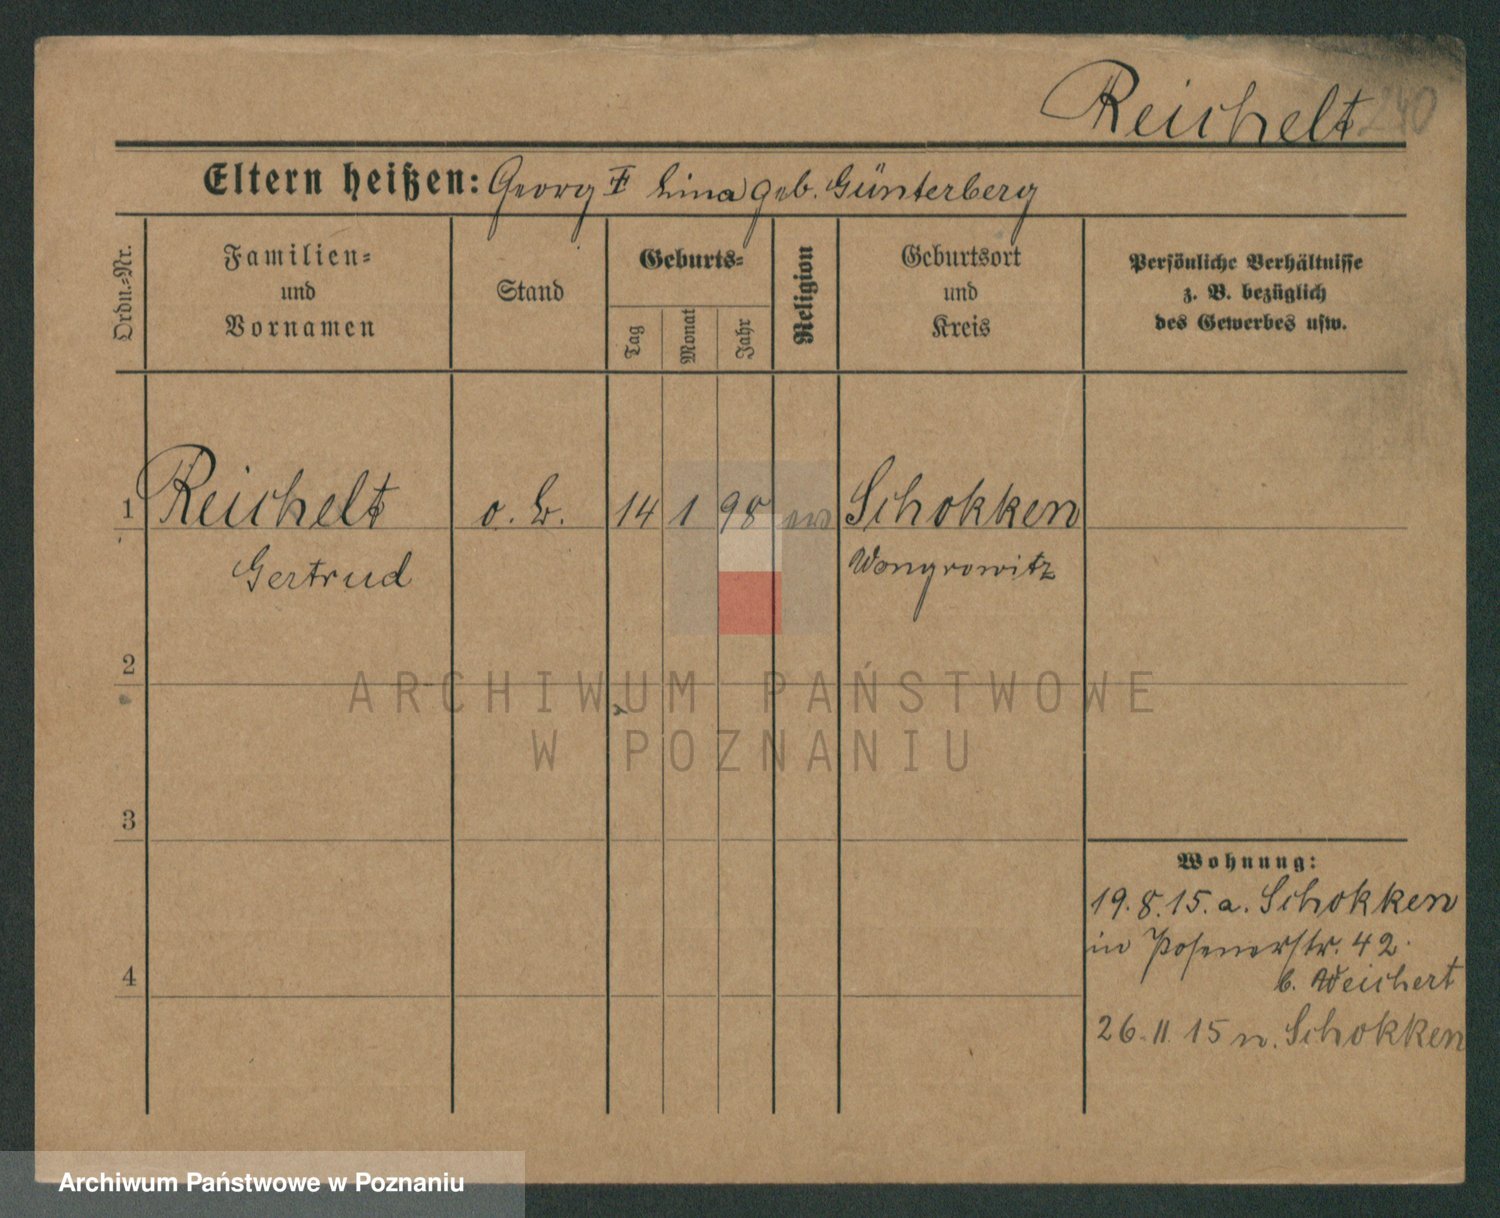 Reichelt 240
Eltern heißen: Georg Lina geb. Günterberg
Ordn.-Nr.
Familien=
und
Vornamen
Stand
Geburts=
Tag
Monat
Jahr
Religion
Geburtsort
und
Kreis
Persönliche Verhältnisse
z. B. bezüglich
des Gewerbes usw.
1 Reichelt o. B. 14 1 98 ev Schokken
Gertrud Wongrowitz
2
ARCHIWUM PAŃSTWOWE
W POZNANIU
3
Wohnung:
19.8.15. a. Schokken
in Posenerstr. 42.
b. Weichert
4
26.11.15 n. Schokken
Archiwum Państwowe w Poznaniu